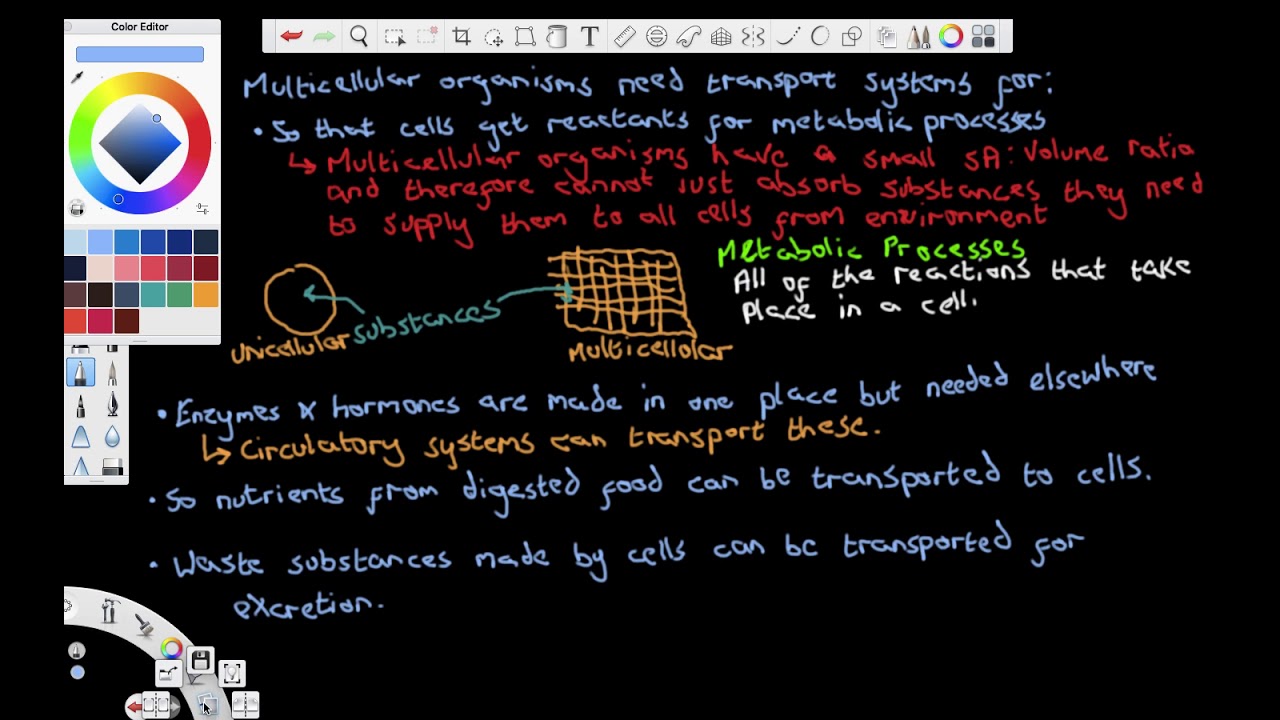 Color Editor
T
Multicellular organisms need transport systems for:
• So that cells get reactants for metabolic processes
↳ Multicellular organisms have a small SA: Volume ratio
and therefore cannot just absorb substances they need
to supply them to all cells from environment
Metabolic Processes
All of the reactions that take
place in a cell.
substances
Unicellular
Multicellolar
• Enzymes & hormones are made in one place but needed elsewhere
↳ Circulatory systems can transport these.
• So nutrients from digested food can be transported to cells.
• Waste substances made by cells can be transported for
excretion.